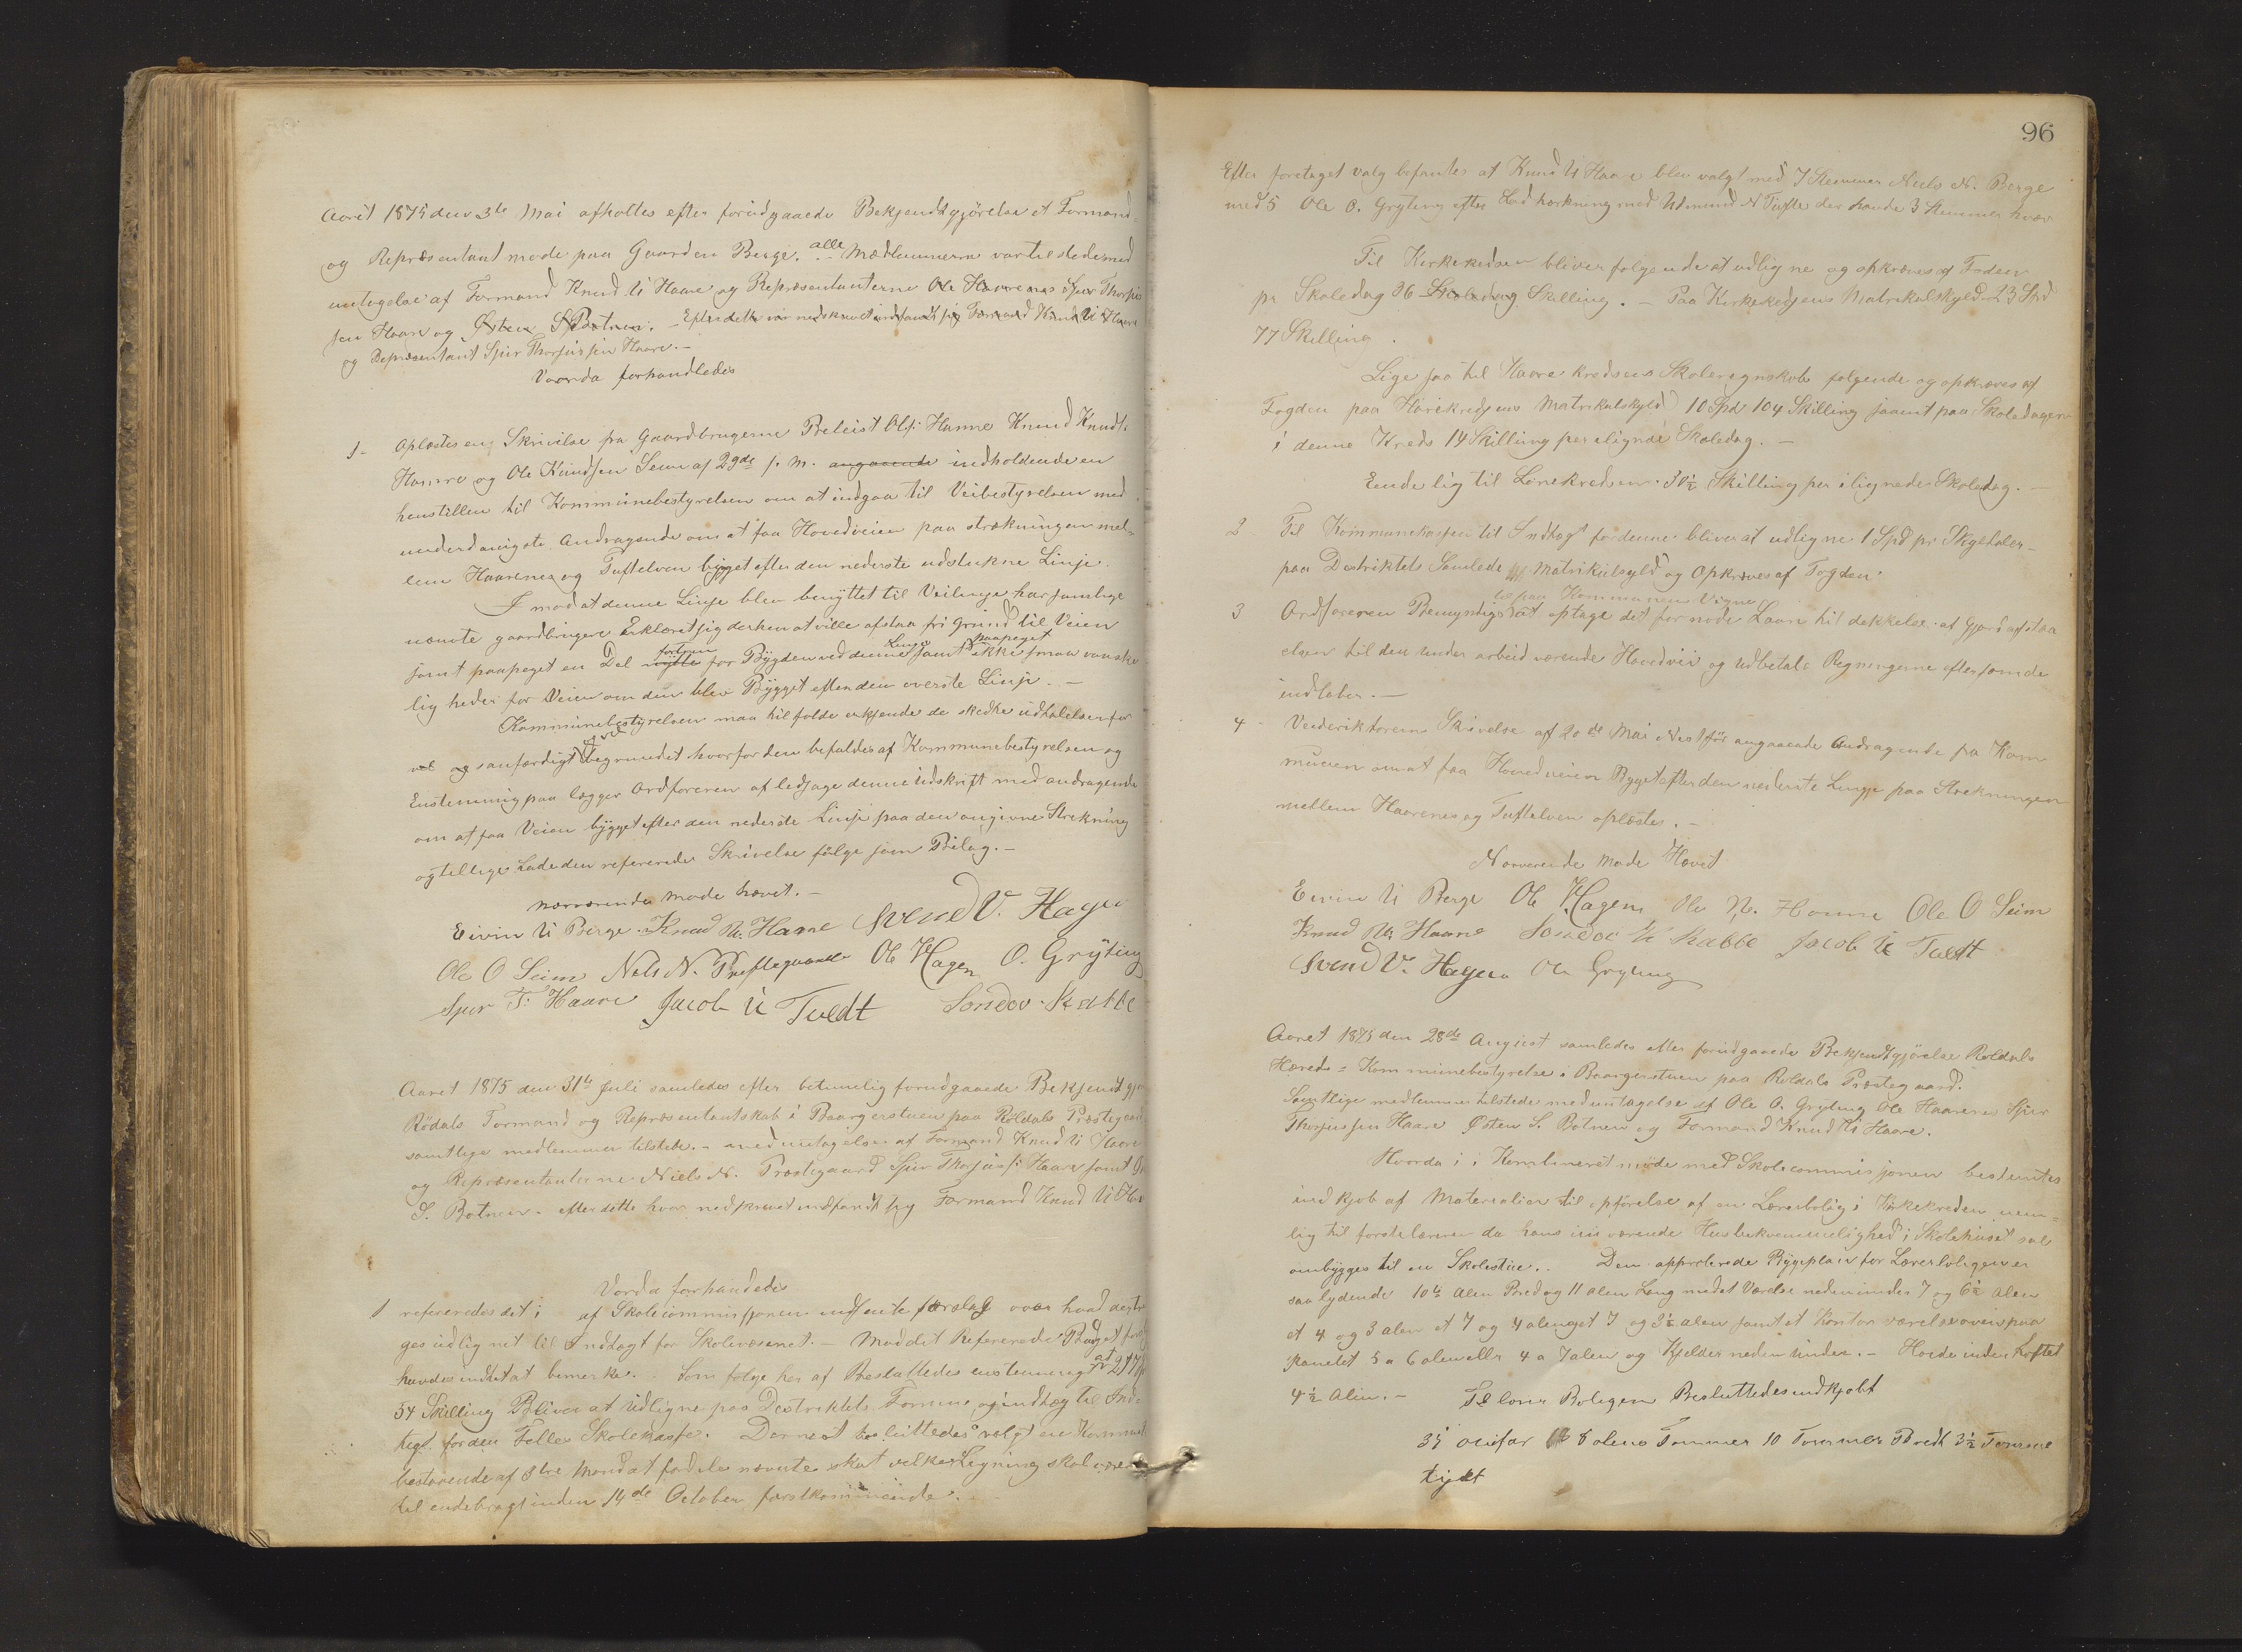 Aaret 1875 den 3te Mai afholtes efter forudgaaede Bekjendtgjörelse et Formand-
og Repræsentant møde paa Gaarden Berge. alle Mædlemmerne var tilstede med
untagelse af Formand Knud U Haare og Repræsentanterne Ole Haarenæs Sjur Thorjus
sen Haare og Østen S Botnen. - Efter dette var nedskrevet indfandt sig Formand Knud U Haare
og Repræsentant Sjur Thorjussen Haare. -
Vorda forhandledes
1- Oplæstes en Skrivelse fra Gaardbrugerne Breleist Ols: Hamre Knud Knuds.
Hamre og Ole Knudsen Seim af 29de f. M. angaaende indholdende en
henstillen til Kommunebestyrelsen om at indgaa til Veibestyrelsen med
underdanigste Andragende om at faa Hovedveien paa strækningen mel-
lem Haarenes og Tuftelven bygget efter den nederste udstukne Linje.
I mod at denne Linje blev benyttet til Veilinje har samtlige
nævnte gaardbrugere Erklæret sig derhen at ville afstaa fri Grund til Veien
samt paapeget en Del nytte fortrin for Bygden ved denne Linje samt paapeget ikke smaa vanske
lig heder for Veien om den blev Bygget efter den øverste Linje. -
Kommunebestyrelsen maa tilfolde erkjende de skedte udtalelser for
vel og sanfærdigt begrundet hvorfor den befaldes af Kommunebestyrelsen og
Enstemmig paa lægger Ordføreren at ledsage denne Udskrift med andragende
om at faa Veien bygget efter den nederste Linje paa den angivne Strekning
og tillige Lade den refererede Skrivelse følge som Bilag. -
nærværende møde hævet. -
Eivin U Berge. Knud K. Hamre Svend V. Hagen
Ole O Seim Nels N. Prestegaard Ole Hagen O. Gryting
Sjur T. Haare Jacob U Tvedt Sondov Rabbe
Aaret 1875 den 31te Juli samledes efter betimelig forudgaaede Bekjendtgjø
Röldals Formand og Repræsentantskab i Baargerstuen paa Röldals Præstegaard
samtlige medlemmer tilstede. - med untagelse af Formand Knud U Haare
og Repræsentanterne Niels N. Præstegaard Sjur Thorjus: Haare samt
S. Botnen. efter dette hvar nedskrevet indfandt sig Formand Knud U Haa
Vorda forhandledes
1 refereredes det i af Skolecommissionen indsente forslag over hvad der
ges udlignet til Indtægt for Skolevæsenet. - Mod det Refererede Budget
havdes indtet at bemerke. Som følge her af Besluttedes enstemmig at 217
54 Skilling Bliver at Udligne paa Destriktets Formue og indtæg til Ind-
tegt for den Felles Skolekasse. Dernest besluttedes valgt en Kommis
bestaaende af 3tre Mænd at fordele nævnte skat velken Ligning skal være
til endebragt inden 14de October førstkommende. -
96
Efter foretaget valg befantes at Knud U Haare blev valgt med 7 Stemmer Niels N. Berge
med 5 Ole O. Gryting efter Lodtrækning med Udmund N Tufte der havde 3 Stemmer hver
Til Kirkekredsen bliver følgende at udligne og opkræves af Foden
pr Skoledag 36 Skoledag Skilling. - Paa Kirkekredsens Matrikulskyld 23 Spd
77 Skilling.
Lige saa til Haare kredsens Skoleregnskab følgende og opkræves af
Fogden paa Harekredsens Matrikulskyld 10 Spd 104 Skilling samt paa Skoledagen
i denne Kreds 14 Skilling per elignde Skoledag. -
Ende lig til Lønekredsen 30½ Skilling per ilignede Skoledag. -
2 Til Kommunekassen til Indtægt for denne bliver at udligne 1 Spd pr Skyldaler
paa Destriktets Samlede Matrikulskyld og Opkræves af Fogden.
3 Ordføreren Bemyndiges til paa Kommunens Vegne at optage det for nøde Laan til dekkelse af Gjord afstaa
elsen til den under arbeid værende Hovedvei og udbetale Regningerne eftersom de
indløber. -
4 - Veiderektørens Skrivelse af 20de Mai Nestför angaaende Andragende fra Kom
munen om at faa Hovedveien Bygget efter den nederste Linje paa Strekningen
mellem Haarenes og Tuftelven oplæstes. -
Nærværende Møde Hævet
Eivin U Berge Ole Hagen Ole N. Hamre Ole O Seim
Knud K. Haare Sondov K Rabbe Jacob U Tvedt
Svend V. Hagen Ole Gryting
Aaret 1875 den 28de August samledes efter forudgaaede Bekjendtgjörelse Röldals
Hæreds = Kommunebestyrelse i Baargerstuen paa Röldals Præstegaard.
Samtlige medlemmer tilstede med untagelse af Ole O. Gryting Ole Haarenes Sjur
Thorjussen Haare Østen S. Botnen og Formand Knud U Haare.
Hvorda i i Kombineret möde med Skolecommissjonen bestemtes
indkjøb af Materialier til opförelse af en Lærerbolig i Kirkekredsen nem-
lig til første læreren da hans nu værende Husbekvemmelighed i Skolehuset skal
ombygges til en Skolestue. . Den approberede Bygeplan for Lærerboligen er
saa lydende 10½ Alen Bred og 11 alen Lang med et Værelse neden under 7 og 6½ Alen
et 4 og 3 alen et 7 og 4 alen get 7 og 3½ alen samt et Kontor værelse oven paa
panelet 5 a 6 alen eller 4 a 7 alen og Kjelder neden under. - Høide inden Loftet
4½ Alen. - Til lærer Boligen Besluttedes indkjøbt
35 omfar 8 alens Tømmer 10 Tommer Bredt 3½ Tomme
tykt